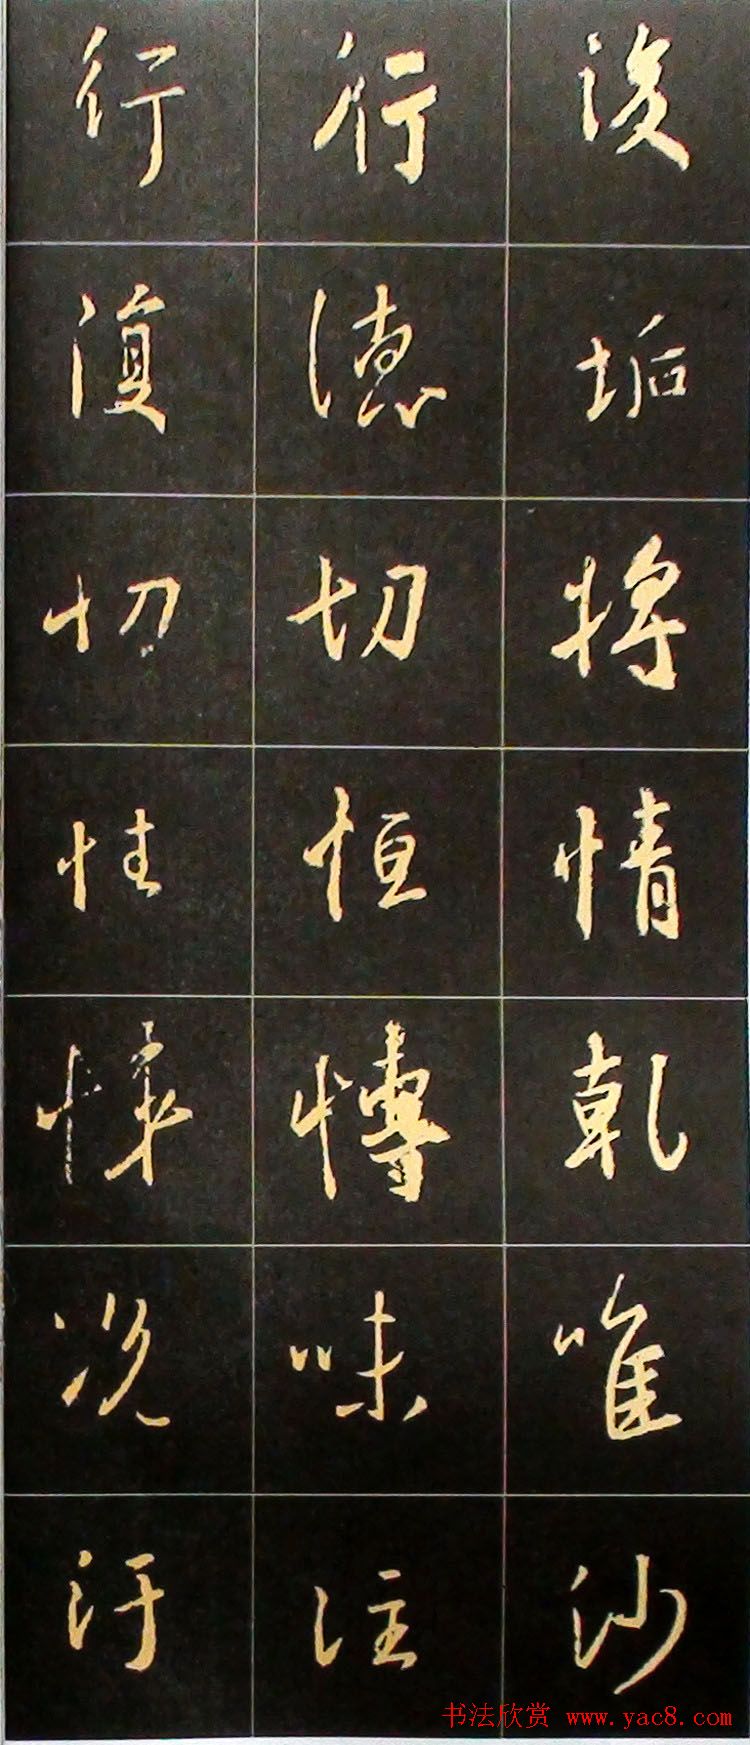 後垢將情乾唯沙
行德切恒慱味注
行復切性懷况汙
书法欣赏 www.yac8.com